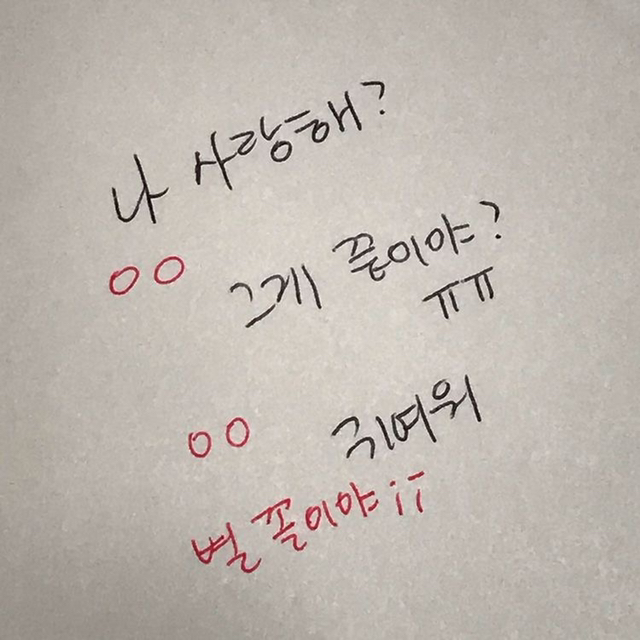 나 사랑해?
ㅇㅇ
그게 끝이야?
ㅠㅠ
ㅇㅇ
귀여워
별 꼴이야 ;;